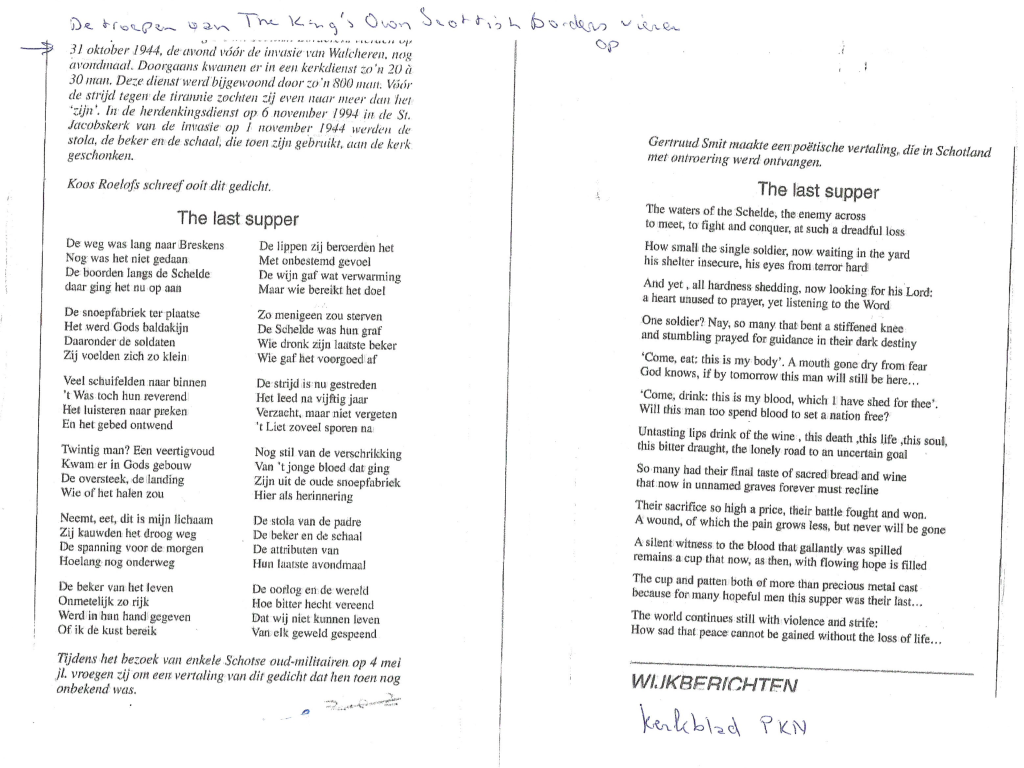 De troepen van The King's Own Scottish borders vieren
op
31 oktober 1944, de avond vóór de invasie van Walcheren, nog
avondmaal. Doorgaans kwamen er in een kerkdienst zo'n 20 à
30 man. Deze dienst werd bijgewoond door zo'n 800 man. Vóór
de strijd tegen de tirannie zochten zij even naar meer dan het
'zijn'. In de herdenkingsdienst op 6 november 1994 in de St.
Jacobskerk van de invasie op 1 november 1944 werden de
stola, de beker en de schaal, die toen zijn gebruikt, aan de kerk
geschonken.
Koos Roelofs schreef ooit dit gedicht.
The last supper
De weg was lang naar Breskens
Nog was het niet gedaan
De boorden langs de Schelde
daar ging het nu op aan
De snoepfabriek ter plaatse
Het werd Gods baldakijn
Daaronder de soldaten
Zij voelden zich zo klein
Veel schuifelden naar binnen
't Was toch hun reverend
Het luisteren naar preken
En het gebed ontwend
Twintig man? Een veertigvoud
Kwam er in Gods gebouw
De oversteek, de landing
Wie of het halen zou
Neemt, eet, dit is mijn lichaam
Zij kauwden het droog weg
De spanning voor de morgen
Hoelang nog onderweg
De beker van het leven
Onmetelijk zo rijk
Werd in hun hand gegeven
Of ik de kust bereik
De lippen zij beroerden het
Met onbestemd gevoel
De wijn gaf wat verwarming
Maar wie bereikt het doel
Zo menigeen zou sterven
De Schelde was hun graf
Wie dronk zijn laatste beker
Wie gaf het voorgoed af
De strijd is nu gestreden
Het leed na vijftig jaar
Verzacht, maar niet vergeten
't Liet zoveel sporen na
Nog stil van de verschrikking
Van 't jonge bloed dat ging
Zijn uit de oude snoepfabriek
Hier als herinnering
De stola van de padre
De beker en de schaal
De attributen van
Hun laatste avondmaal
De oorlog en de wereld
Hoe bitter hecht vereend
Dat wij niet kunnen leven
Van elk geweld gespeend
Tijdens het bezoek van enkele Schotse oud-militairen op 4 mei
jl. vroegen zij om een vertaling van dit gedicht dat hen toen nog
onbekend was.
Gertruud Smit maakte een poëtische vertaling, die in Schotland
met ontroering werd ontvangen.
The last supper
The waters of the Schelde, the enemy across
to meet, to fight and conquer, at such a dreadful loss
How small the single soldier, now waiting in the yard
his shelter insecure, his eyes from terror hard
And yet , all hardness shedding, now looking for his Lord:
a heart unused to prayer, yet listening to the Word
One soldier? Nay, so many that bent a stiffened knee
and stumbling prayed for guidance in their dark destiny
'Come, eat: this is my body'. A mouth gone dry from fear
God knows, if by tomorrow this man will still be here...
'Come, drink: this is my blood, which I have shed for thee'.
Will this man too spend blood to set a nation free?
Untasting lips drink of the wine , this death ,this life ,this soul,
this bitter draught, the lonely road to an uncertain goal
So many had their final taste of sacred bread and wine
that now in unnamed graves forever must recline
Their sacrifice so high a price, their battle fought and won.
A wound, of which the pain grows less, but never will be gone
A silent witness to the blood that gallantly was spilled
remains a cup that now, as then, with flowing hope is filled
The cup and patten both of more than precious metal cast
because for many hopeful men this supper was their last...
The world continues still with violence and strife:
How sad that peace cannot be gained without the loss of life...
WIJKBERICHTEN
kerkblad PKN